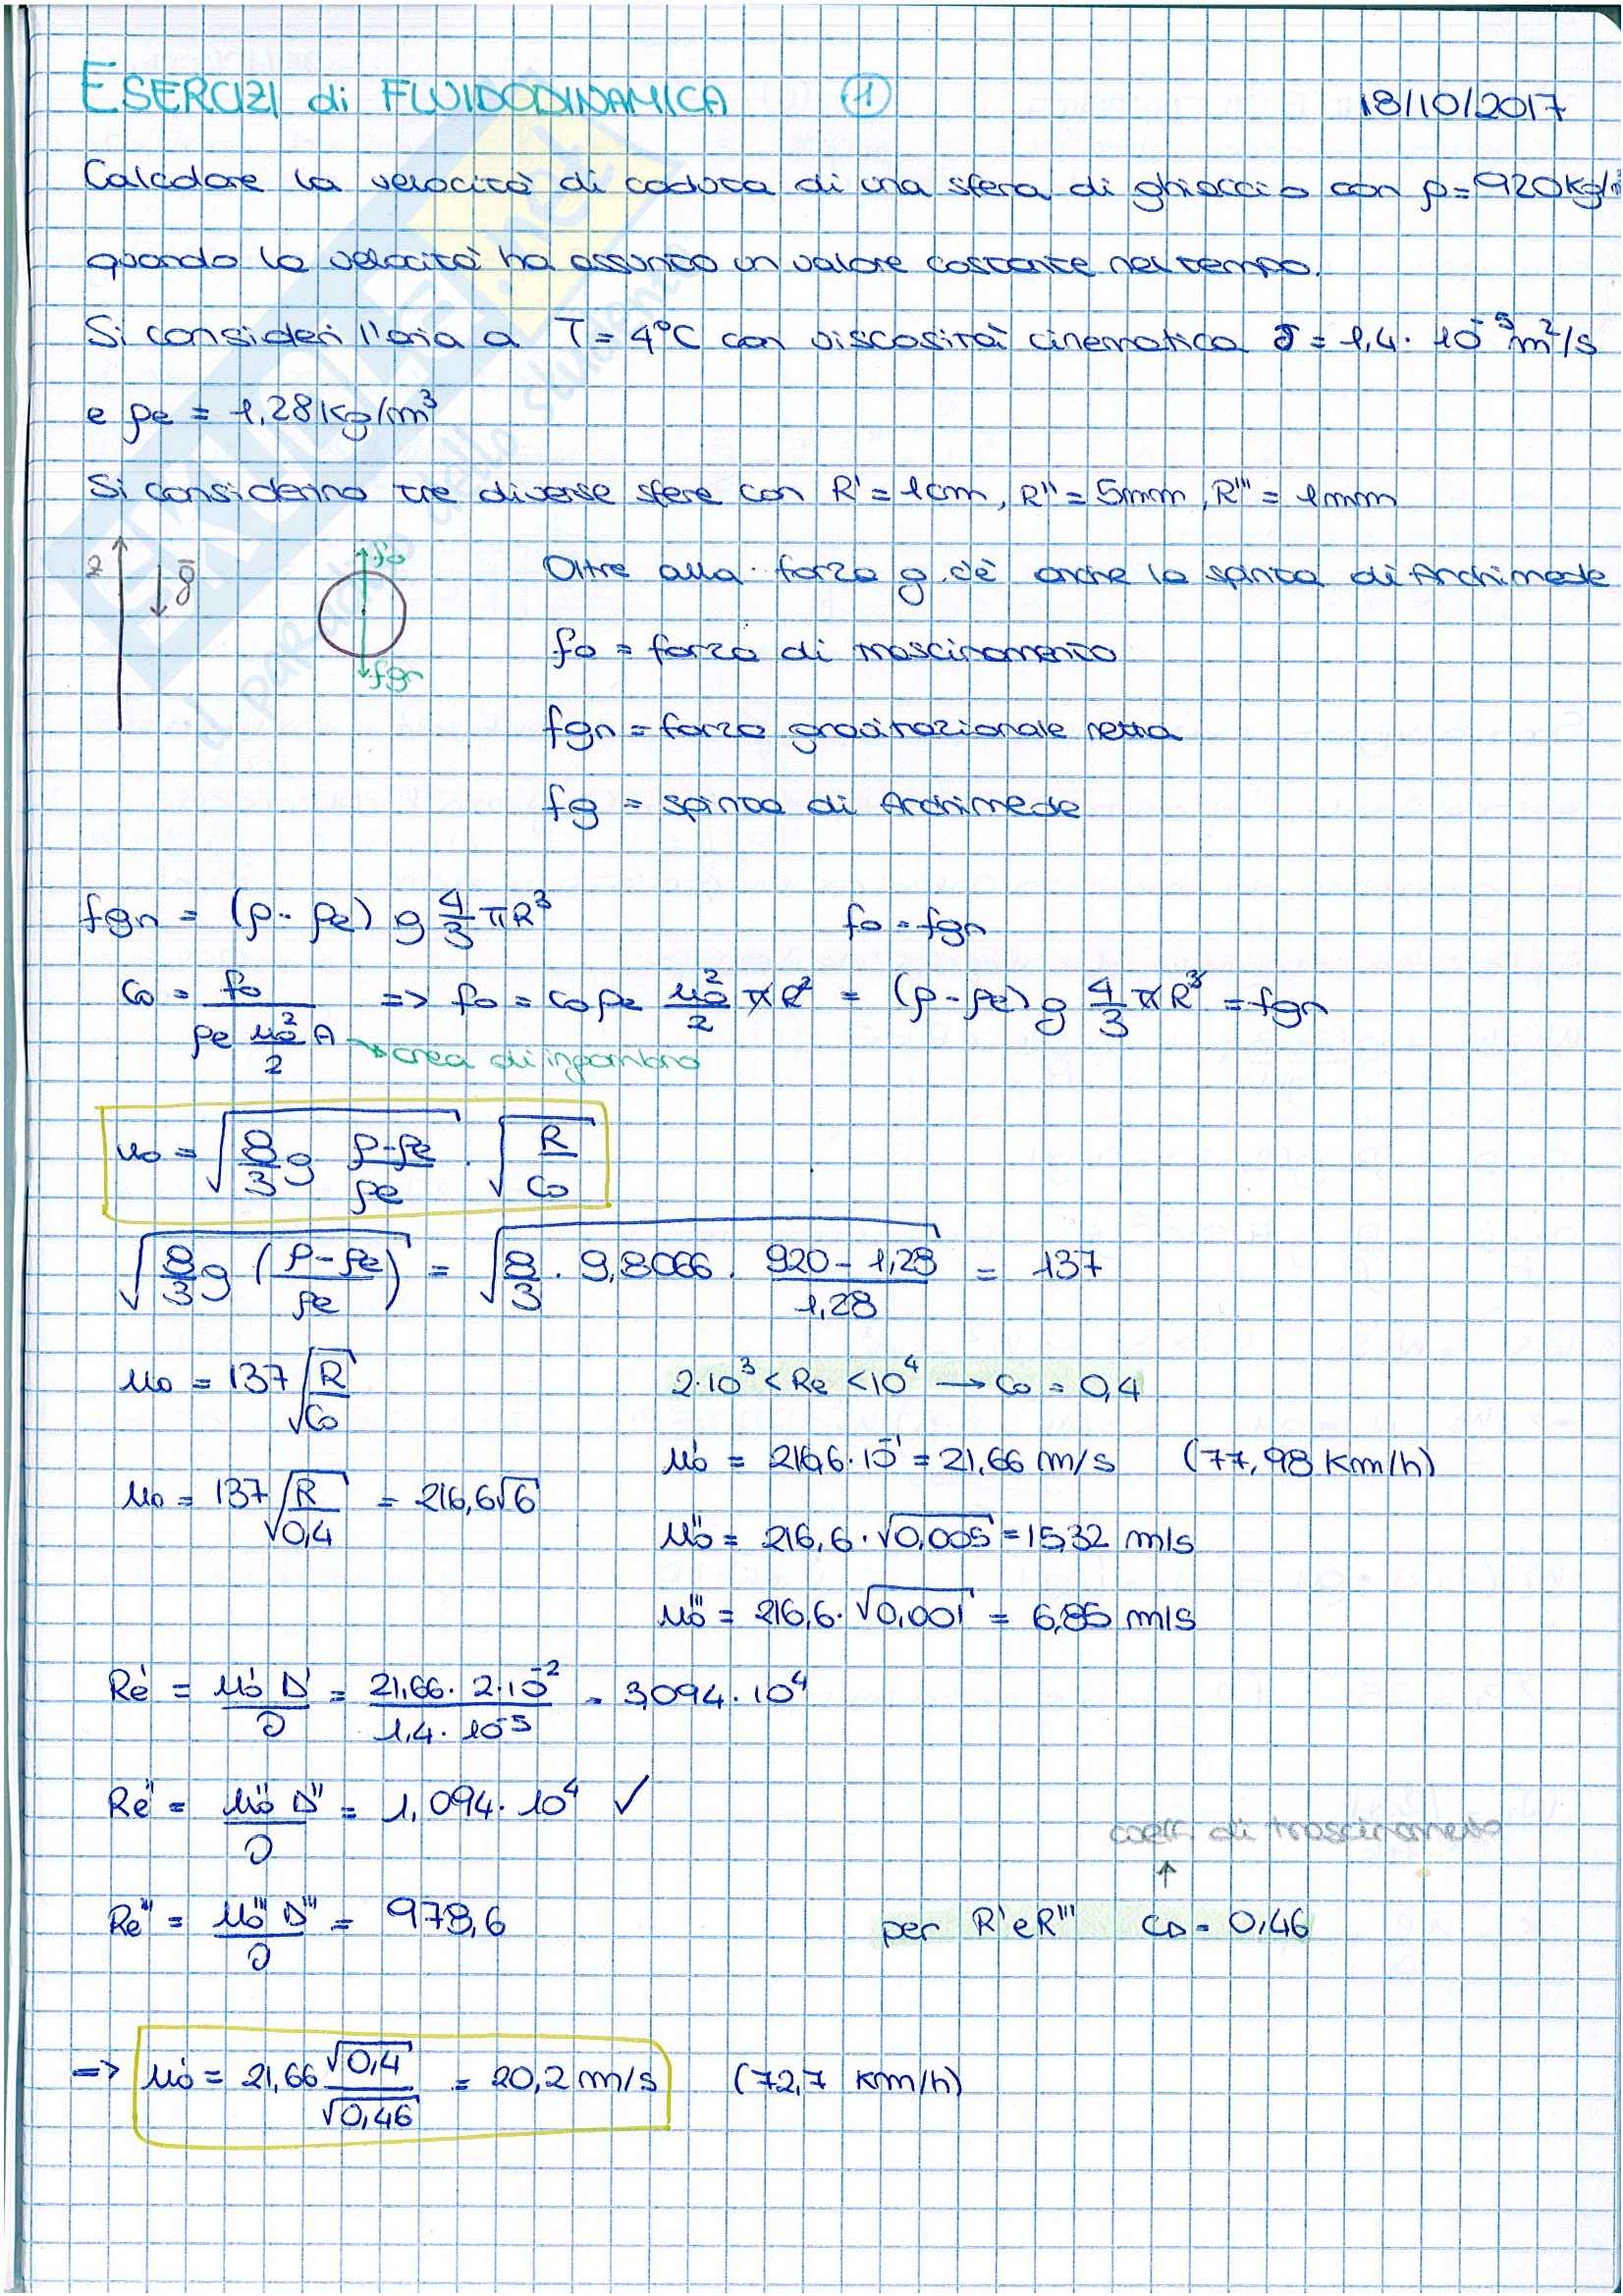 ESERCIZI di FLUIDODINAMICA ① 18/10/2017
Calcolare la velocità di caduta di una sfera di ghiaccio con ρ = 920 Kg/m³
quando la velocità ha assunto un valore costante nel tempo.
Si consideri l'aria a T = 4°C con viscosità cinematica ν = 1,4 · 10⁻⁵ m²/s
e ρe = 1,28 Kg/m³
Si considerino tre diverse sfere con R' = 1 cm, R'' = 5mm, R''' = 1mm
z g̅ fD fgn
Oltre alla forza g c'è anche la spinta di Archimede
fD = forza di trascinamento
fgn = forza gravitazionale netta
fg = spinta di Archimede
fgn = (ρ - ρe) g 4/3 πR³ fD = fgn
CD = fD / (ρe u₀²/2 A) => fD = CD ρe u₀²/2 πR² = (ρ - ρe) g 4/3 πR³ = fgn
→ area di ingombro
u₀ = √(8/3 g (ρ - ρe)/ρe) · √(R/CD)
√(8/3 g ((ρ - ρe)/ρe)) = √(8/3 · 9,8066 · (920 - 1,28)/1,28) = 137
u₀ = 137 √(R/CD) 2·10³ < Re < 10⁴ → CD = 0,4
u₀' = 216,6 · 10⁻¹ = 21,66 m/s (77,98 Km/h)
u₀ = 137 √(R/0,4) = 216,6 √6
u₀'' = 216,6 · √0,005 = 15,32 m/s
u₀''' = 216,6 · √0,001 = 6,85 m/s
Re' = u₀' D'/ν = (21,66 · 2·10⁻²)/(1,4 · 10⁻⁵) = 3,094 · 10⁴
Re'' = u₀'' D''/ν = 1,094 · 10⁴ ✓
coeff. di trascinamento
↑
Re''' = u₀''' D'''/ν = 978,6 per R' e R''' CD = 0,46
=> u₀' = 21,66 √0,4/√0,46 = 20,2 m/s (72,7 Km/h)